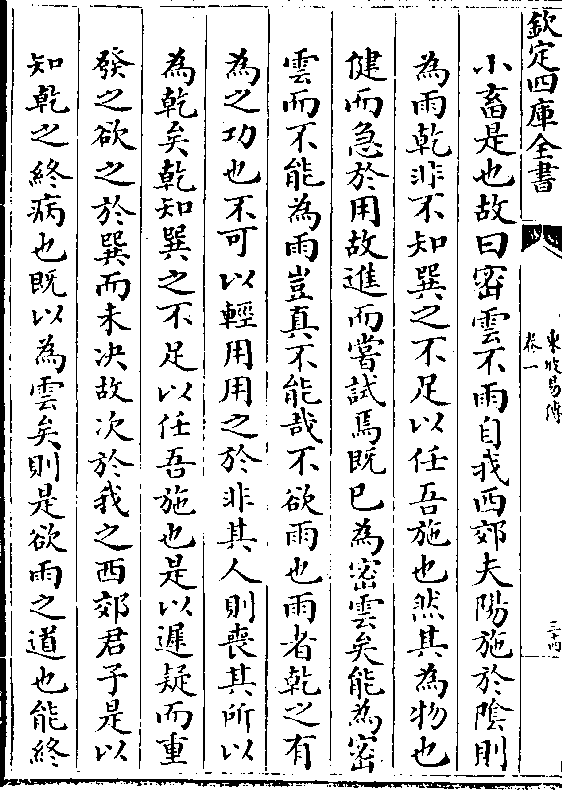 欽定四庫全書
東坡易傳
卷一
三十四
小畜是也故曰密雲不雨自我西郊夫陽施於陰則
為雨乾非不知巽之不足以任吾施也然其為物也
健而急於用故進而嘗試焉既已為密雲矣能為密
雲而不能為雨豈真不能哉不欲雨也雨者乾之有
為之功也不可以輕用用之於非其人則喪其所以
為乾矣乾知巽之不足以任吾施也是以遲疑而重
發之欲之於巽而未決故次於我之西郊君子是以
知乾之終病也既以為雲矣則是欲雨之道也能終